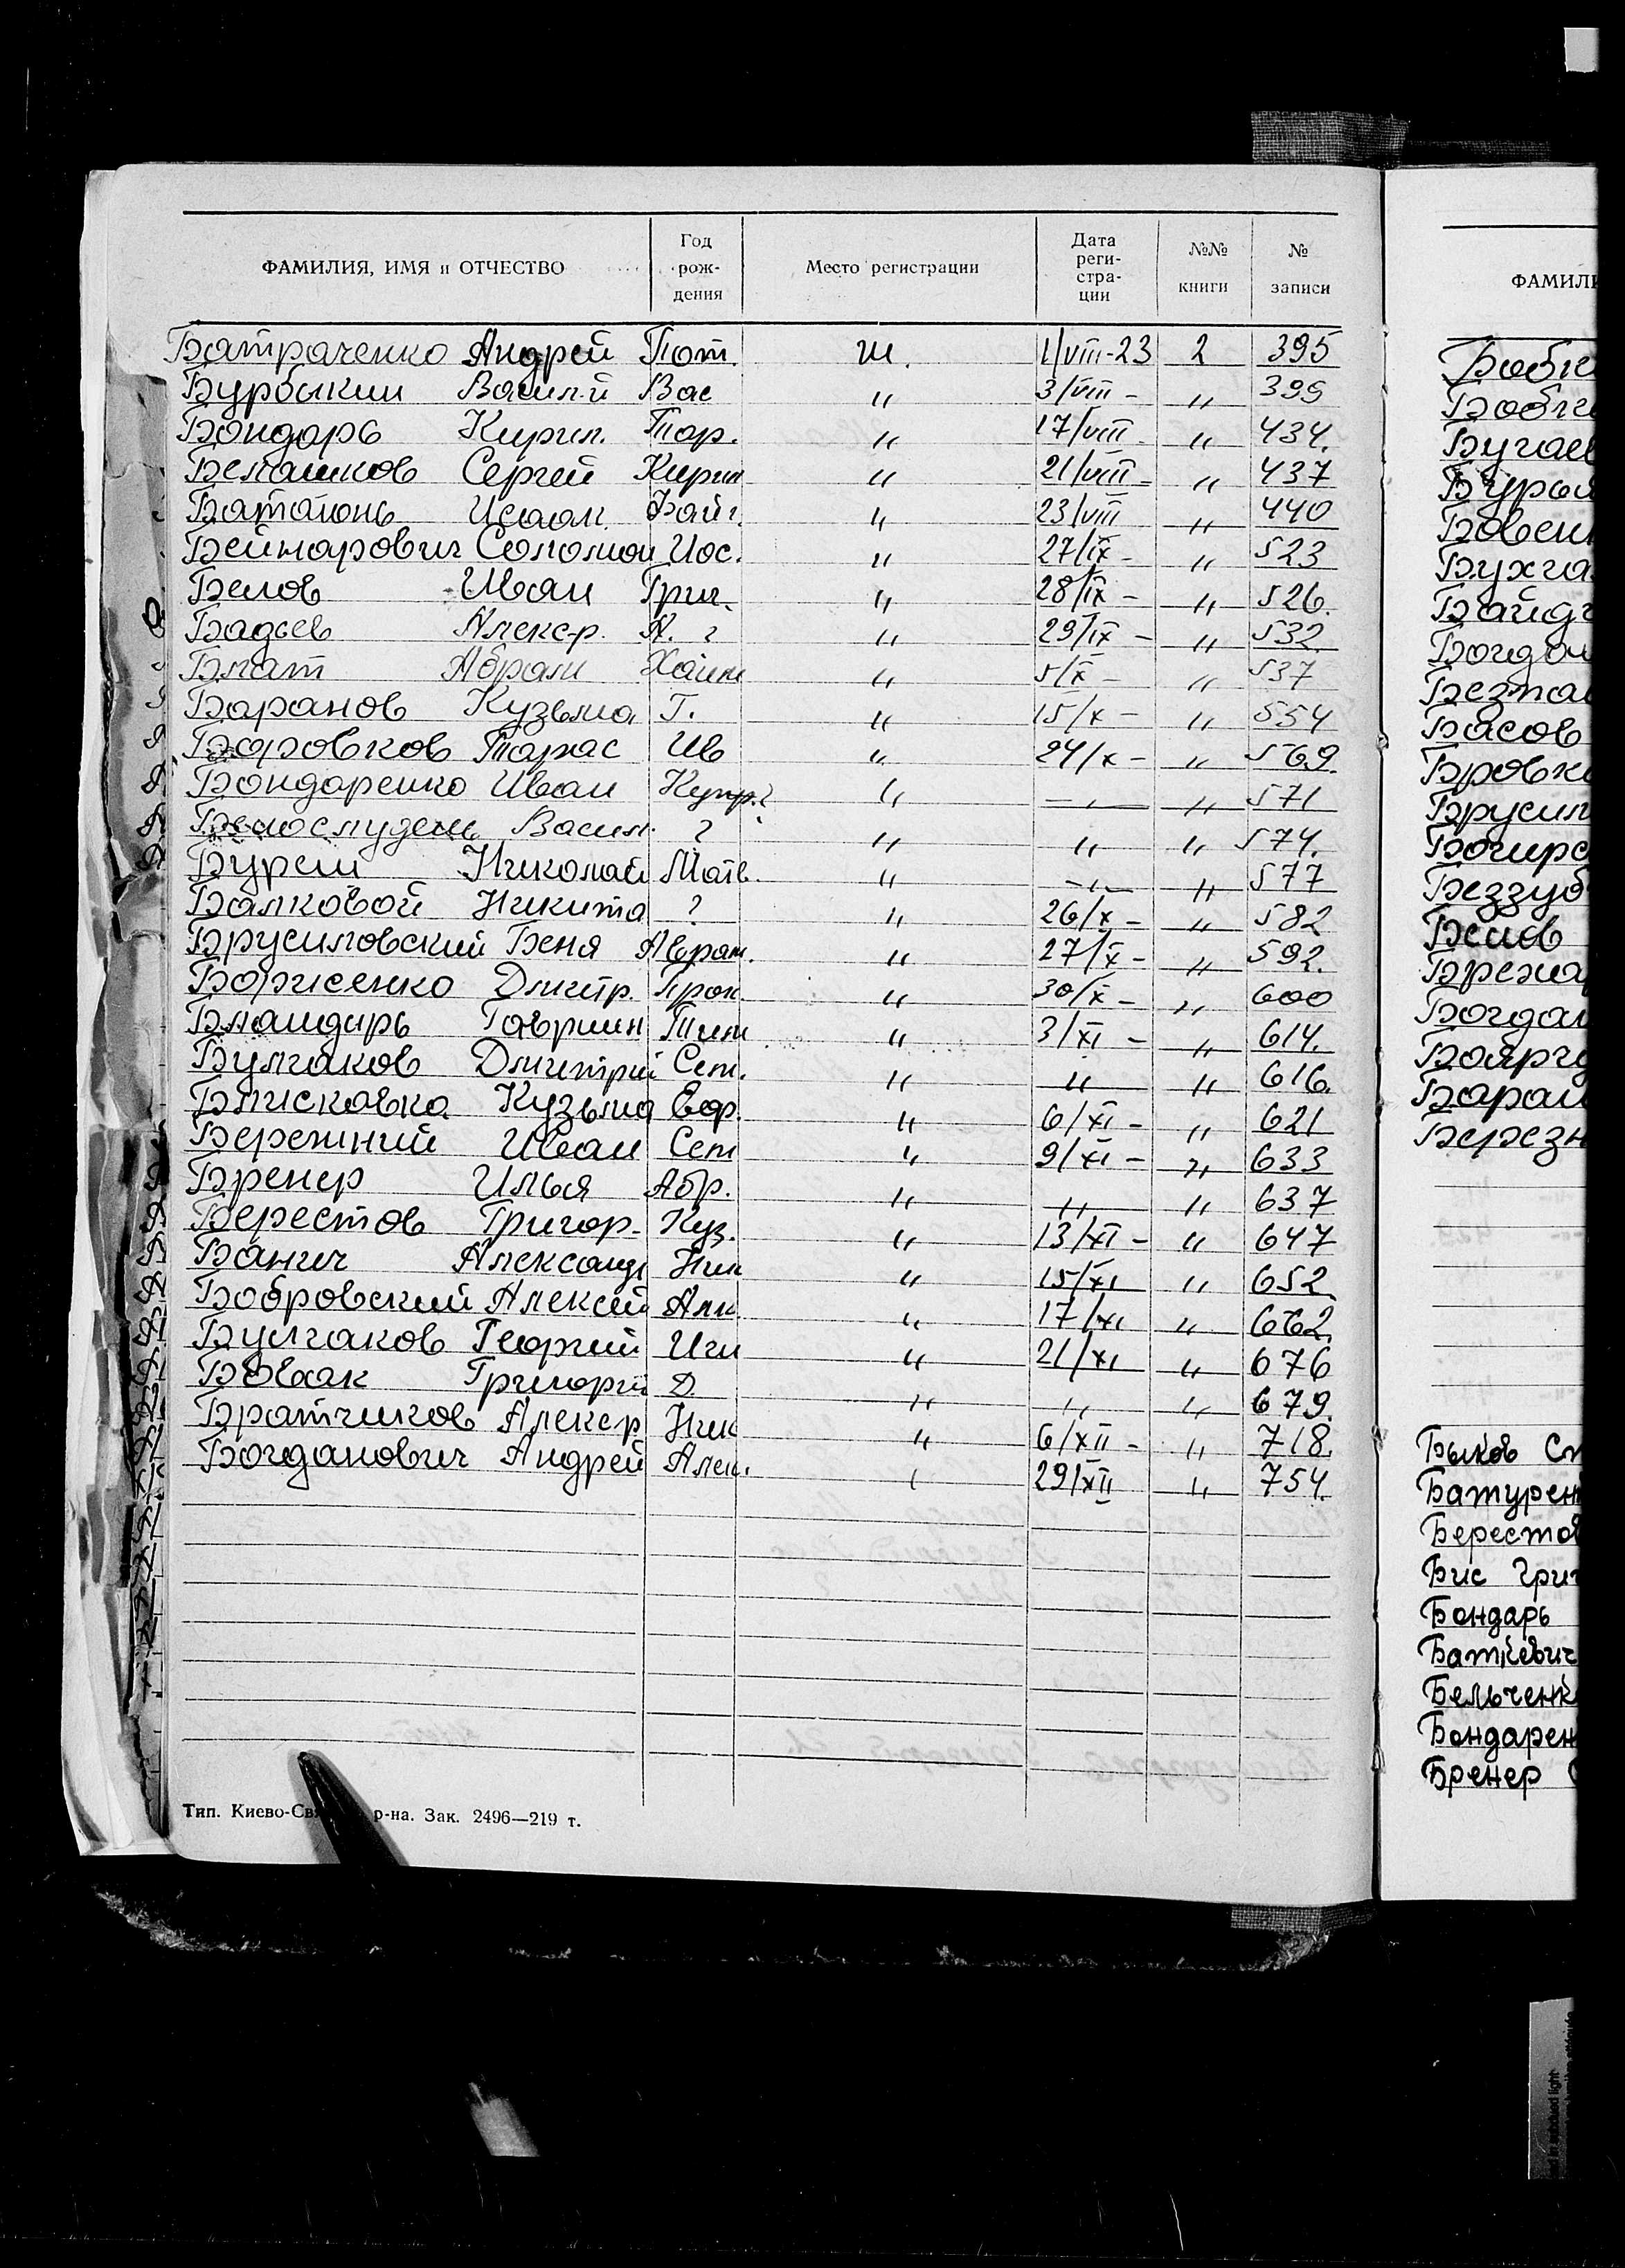 ФАМИЛИЯ, ИМЯ и ОТЧЕСТВО Год рож- дения Место регистрации Дата реги- стра- ции №№ книги № записи
Батраченко Андрей Пот. Ш. 1/VIII-23 2 395
Бурбыкин Васил.й Вас " 3/VIII - " 399
Бондарь Кирил. Тар. " 17/VIII - " 434.
Белашков Сергей Кирил " 21/VIII - " 437
Исаак " 23/VIII " 440
Бейнарович Соломон Иос. " 27/IX - " 523
Белов Иван Григ. " 28/IX - " 526.
Бадьев Алекс-р. А. ? " 29/IX - " 532
Блат Абрам Хаим " 5/X - " 537
Баранов Кузьма Г. " 15/X - " 554
Боровков Тарас Ив " 24/X - " 569.
Бондаренко Иван Купр.? " -„- " 571
Васил. ? " " " 574.
Николай Матв. " -„- " 577
Балковой Никита ? " 26/X - " 582
Брусиловский Беня Аврам. " 27/X - " 592.
Борисенко Дмитр. Прок. " 30/X - " 600
Гавриил Тим " 3/XI - " " 614.
Булгаков Дмитрий Сем. " " " 616.
Блисковка Кузьма Еф. " 6/XI - " 621
Бережний Иван Сем " 9/XI - " 633
Бренер Илья Абр. " " " 637
Берестов Григор- Куз. " 13/XI - " 647
Банич Александ Ник " 15/XI " 652.
Бобровский Алексей Алк. " 17/XI " 662.
Булгаков Георгий Игн " 21/XI " 676
Григорий Д " " " 679.
Братчиков Алекс-р Ник " 6/XII - " 718.
Богданович Андрей Алек. " 29/XII " 754.
Тип. Киево-Свя р-на. Зак. 2496—219 т.
ФАМИЛИ
Бугаев
Басов
Беззуб
Белов
Быков Ст
Батурен
Берестов
Бис Григ
Бондарь
Баткевич
Бельченк
Бондарен
Бренер